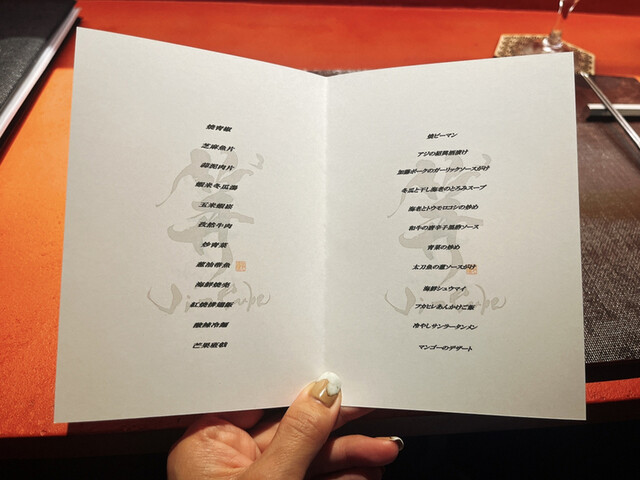 焼青椒
芝麻魚片
蒜泥肉片
蝦米冬瓜湯
玉米蝦崧
孜然牛肉
炒青菜
葱油帯魚
海鮮焼売
酸辣冷麺
焼ピーマン
アジの紹興酒漬け
加藤ポークのガーリックソースがけ
冬瓜と干し海老のとろみスープ
海老とトウモロコシの炒め
和牛の唐辛子黒酢ソース
青菜の炒め
太刀魚の葱ソースがけ
海鮮シュウマイ
フカヒレあんかけご飯
冷やしサンラータンメン
マンゴーのデザート